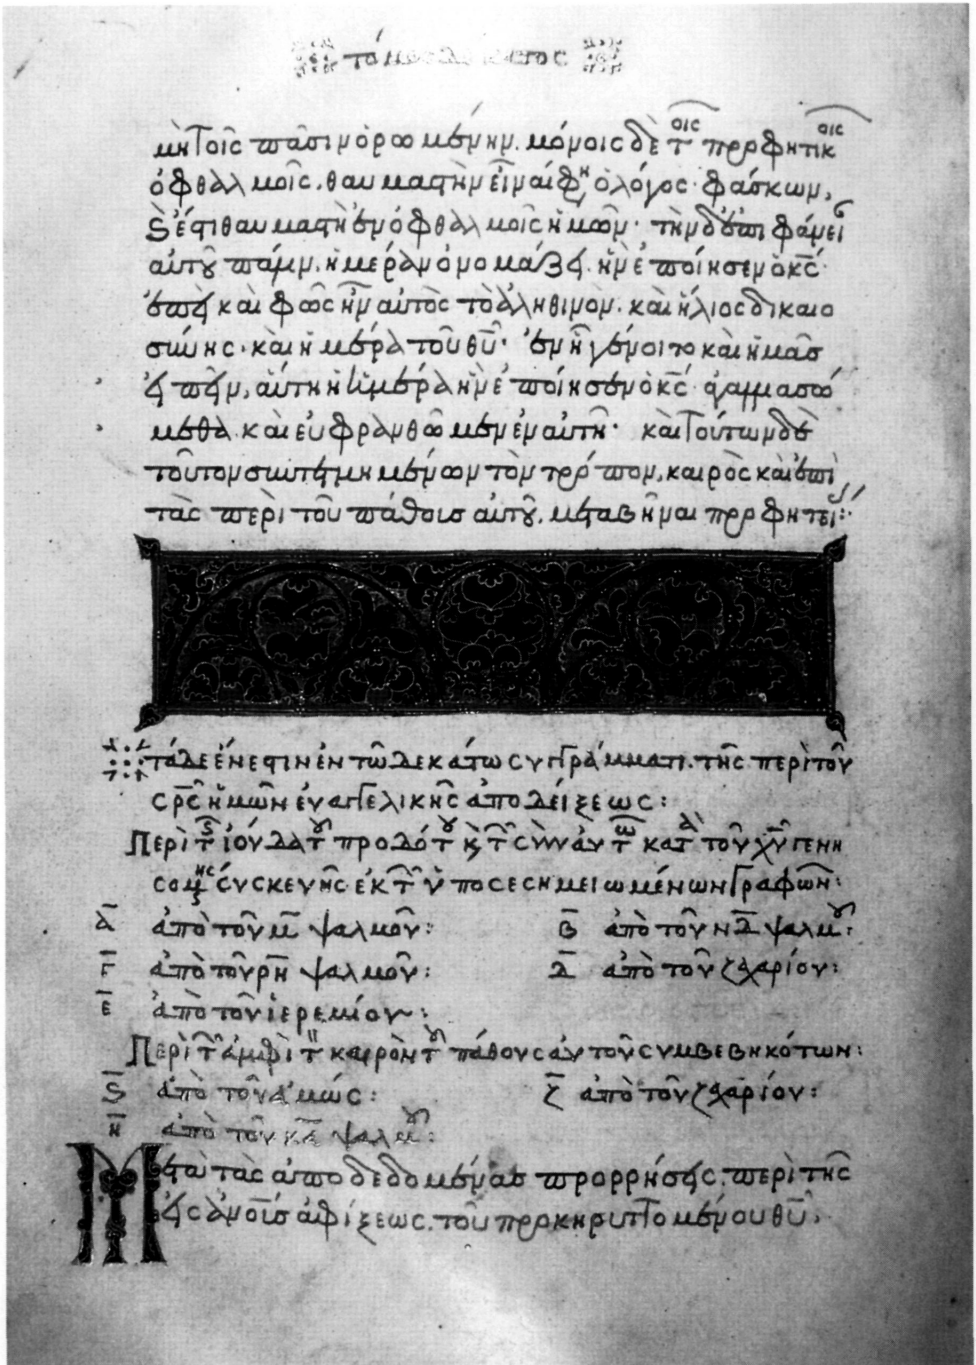 τόμος δέκατος
μὴ τοῖς πᾶσιν ὁρωμένην. μόνοις δὲ τοῖς προφητικοῖς
ὀφθαλμοῖς. θαυμαστὴν εἶναί φη ὁ λόγος· φάσκων,
ϛ ἔστι θαυμαστὴ ἐν ὀφθαλμοῖς ἡμῶν· τὴν δ' ἐπιφάνει
αὐτοῦ πάλιν, ἡμέραν ὀνομάζει. ἣν ἐποίησεν ὁ κ̅ς̅·
ἐπεὶ καὶ φῶς ἦν αὐτὸς τὸ ἀληθινὸν. καὶ ἥλιος δικαιο
σύνης· καὶ ἡμέρα τοῦ θ̅υ̅· ἐν ᾗ γένοιτο καὶ ἡμᾶς
εἰπεῖν, αὕτη ἡ ἡμέρα ἣν ἐποίησεν ὁ κ̅ς̅· ἀγαλλιασώ
μεθα καὶ εὐφρανθῶμεν ἐν αὐτῇ· καὶ τούτων δὲ
τοῦτον συντετμημένων τὸν τρόπον, καιρὸς καὶ ἐπὶ
τὰς περὶ τοῦ πάθους αὐτοῦ, μεταβῆναι προφητεί:
τάδε ἔνεστιν ἐν τῶ δεκάτω συγγράμματι. τῆς περὶ τοῦ
σ̅ρ̅ς̅ ἡμῶν εὐαγγελικῆς ἀποδείξεως:
Περὶ τῆς ἰούδα τοῦ προδότου καὶ τῶν σὺν αὐτῶ κατὰ τοῦ χ̅υ̅ γενη
σομένης συσκευῆς· ἐκ τῶν ὑποσεσημειωμένων γραφῶν:
α̅ ἀπὸ τοῦ μ̅ ψαλμοῦ: β̅ ἀπὸ τοῦ ν̅δ̅ ψαλμοῦ:
γ̅ ἀπὸ τοῦ ρ̅η̅ ψαλμοῦ: δ̅ ἀπὸ τοῦ ζαχαρίου:
ε̅ ἀπὸ τοῦ ἱερεμίου:
Περὶ τῶν ἀμφὶ τὸν καιρὸν τοῦ πάθους αὐτοῦ συμβεβηκότων:
ϛ̅ ἀπὸ τοῦ ἀμώς: ζ̅ ἀπὸ τοῦ ζαχαρίου:
η̅ ἀπὸ τοῦ κ̅α̅ ψαλμοῦ:
Μετὰ τὰς ἀποδεδομένας προρρήσεις, περὶ τῆς
εἰς ἀ̅ν̅ο̅υ̅ς̅ ἀφίξεως. τοῦ προκηρυττομένου θ̅υ̅,